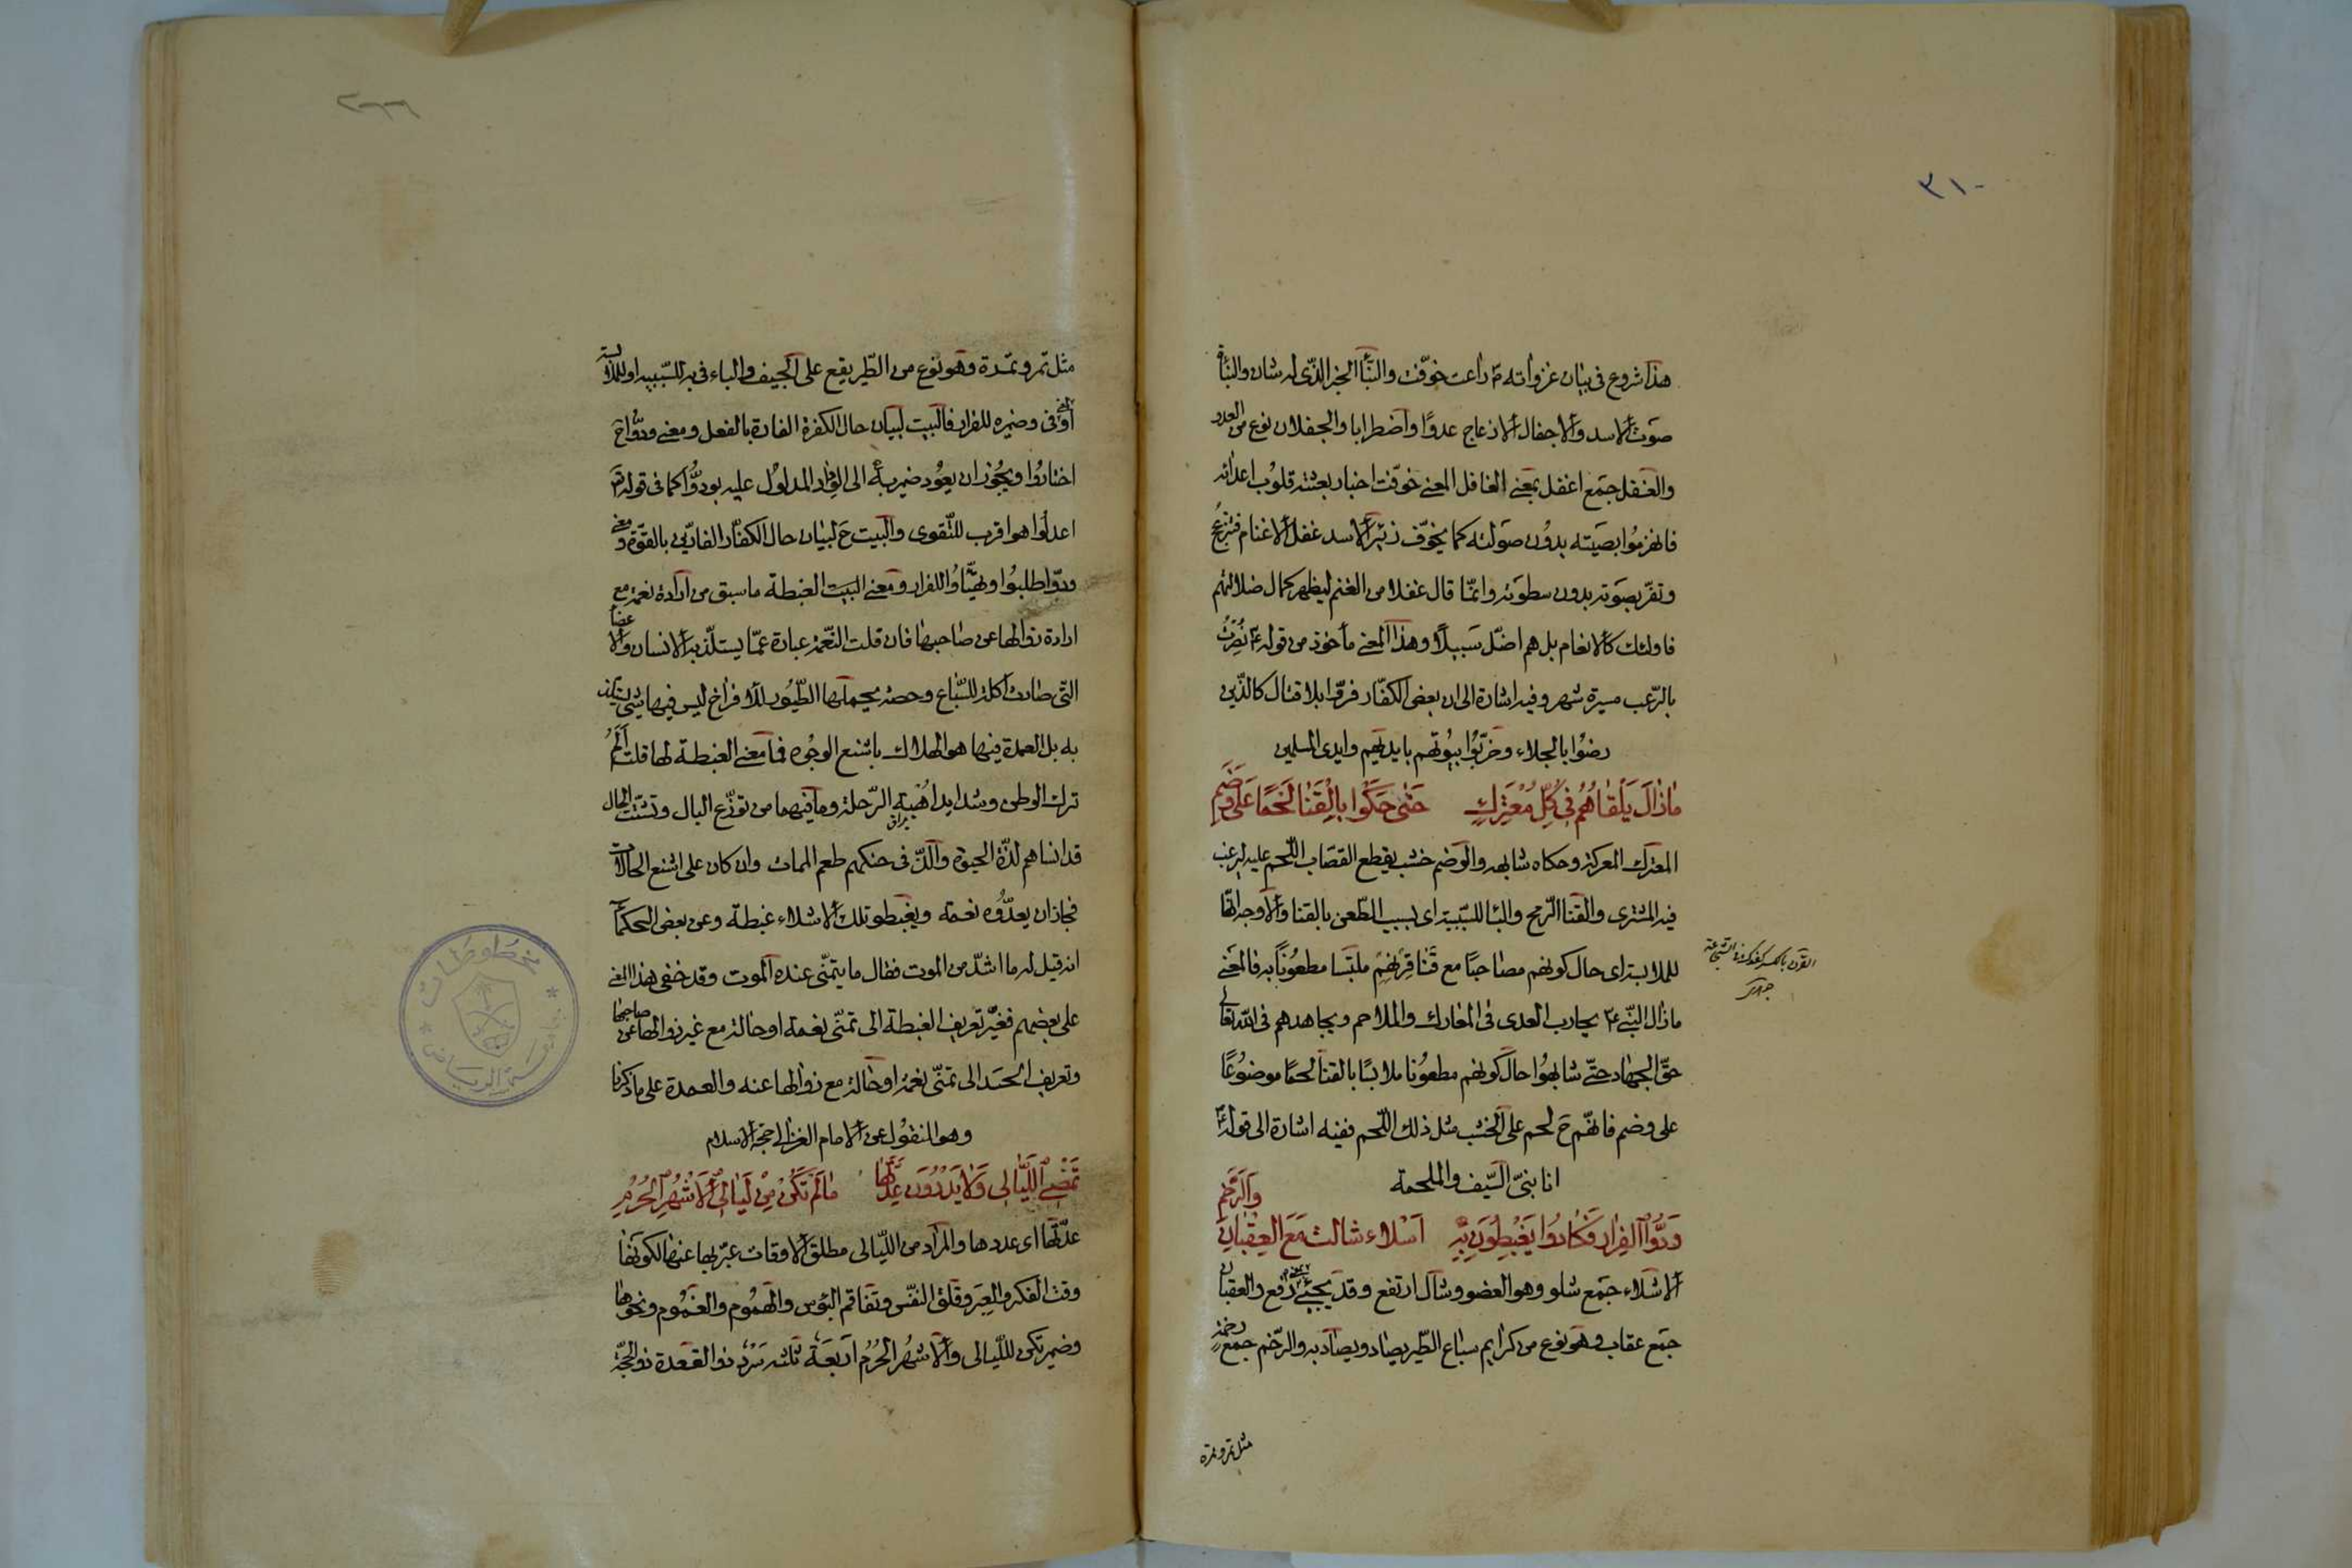 ٣١٠
هذا شروع فى بيان غزواته ٢م راعت خوّفت والنّبأ الخبر الذّى له شان والنبأة
صوت الاسد والاجفال الازعاج عدوًا واضطرابا والجفلان نوع من العدو
والغفل جمع اغفل بمعنى الغافل المعنى خوّفت اخبار بعثته قلوب اعدائه
فانهزموا بصيته بدون صولته كما يخوّف زئير الاسد غفل الاغنام فتنزعج
وتفرّ بصوته بدون سطوته وانمّا قال غفلا من الغنم ليظهر كمال ضلالتهم
فاولئك كالانعام بل هم اضلّ سبيلًا وهذا المعنى مأخوذ من قوله ٤م نُصِرْتُ
بالرّعب مسيرة شهر وفيه اشارة الى ان بعض الكفّار فرّوا بلا قتال كالذّين
رضوا بالجلاء وخرّبوا بيوتهم بايديهم وايدى المسلمين
مَازَالَ يَلْقَاهُمُ فِى كُلِّ مُعْتَرَكٍ حَتّٰى حَكَوْا بِالْقَنَا لَحْمًا عَلٰى وَضَمِ
المعترك المعركة وحكاه شابهه والوضم خشب يقطع القصّاب اللّحم عليه ليرغب
فيه المشترى والقنا الرّمح والباء للسّببيّة اى بسبب الطّعن بالقنا والاوجه انّها
للملابسة اى حال كونهم مصاحبًا مع قَنَا قِرْنِهِمْ ملتبّسا مطعونًا به فالمعنى
القرن بالكسر كفوك فى الشجاعة
جوهرى
مازال النّبى ٤م يحارب العدى فى المعارك والملاحم ويجاهدهم فى الله تعالى
حقّ الجهاد حتّى شابهوا حال كونهم مطعونا ملابسًا بالقنا لحمًا موضوعًا
على وضم فانهّم ح لحم على الخشب مثل ذلك اللّحم ففيه اشارة الى قوله ٤م
انا نبىّ السّيف والملحمة
وَدُّوا الْفِرَارَ فَكَادُوا يَغْبِطُونَ بِهِ اَشْلَاءَ شَالَتْ مَعَ الْعِقْبَانِ وَالرَّخَمِ
الاشلاء جمع شلو وهو العضو وشال ارتفع وقد يجيئ بمعنى رفع والعقبان
جمع عقاب وهو نوع من كرايم سباع الطّير يصاد ويصاد به والرّخم جمع رخمة
مثل تمر وتمرة
٢٦٦
مثل تمر وتمرة وهو نوع من الطّير يقع على الجيف والباء فى به للسّببية او للملابسة
او بمعنى فى وضميره للفرار فالبيت لبيان حال الكفرة الفارة بالفعل ومعنى ودّوا ح
اختاروا ويجوز ان يعود ضمير به الى الفرار المدلول عليه بودّوا كما فى قوله تع
اعدلوا هو اقرب للتّقوى والبيت ح لبيان حال الكفّار الفارّين بالقوّة ومعنى
ودّوا طلبوا وتهيّأوا للفرار ومعنى البيت الغبطة ما سبق من ارادة نعمة مع
ارادة زوالها عن صاحبها فان قلت النّعمة عبارة عمّا يستلذّ به الانسان والاعضاء
التى صارت اكلة للسّباع وحصة يحملها الطّيور للافراخ ليس فيها شئ يستلذ
به بل العمدة فيها هو الهلاك باشنع الوجوه فما معنى الغبطة لها قلت اَلَمُ
ترك الوطن وشدايد اهبة الرّحلة وما فيهما من توزّع البال وتشتّت الحال
قد انساهم لذّة الحيوة والذّ فى حنكهم طعم الممات وان كان على اشنع الحالات
فجاز ان يعدّوه نعمة ويغبطو تلك الاشلاء غبطة وعن بعض الحكماء
انه قيل له ما اشدّ من الموت فقال ما يتمنّى عنده الموت وقد خفى هذا المعنى
على بعضهم فغيّر تعريف الغبطة الى تمنّى نعمة او حالة مع غير زوالها عن صاحبها
وتعريف الحسد الى تمنّى نعمة او حالة مع زوالها عنه والعمدة على ما ذكرنا
وهو المنقول عن الامام الغزالى حجّة الاسلام
تَمْضِى اللَّيَالِى وَلَا يَدْرُونَ عِدَّتَهَا مَالَمْ تَكُنْ مِنْ لَيَالِى الْاَشْهُرِ الْحُرُمِ
عدّتها اى عددها والمراد من اللّيالى مطلق الاوقات عبّر بها عنها لكونها
وقت الفكر والعِبَر وقلق النفّس وتفاقم البؤس والهموم والغموم ونحوها
وضمير تكن لللّيالى والاشهر الحُرُم اربعة ثلثه سَرْدٌ ذو القعدة ذو الحجّة
مخطوطات
جامعة الرياض